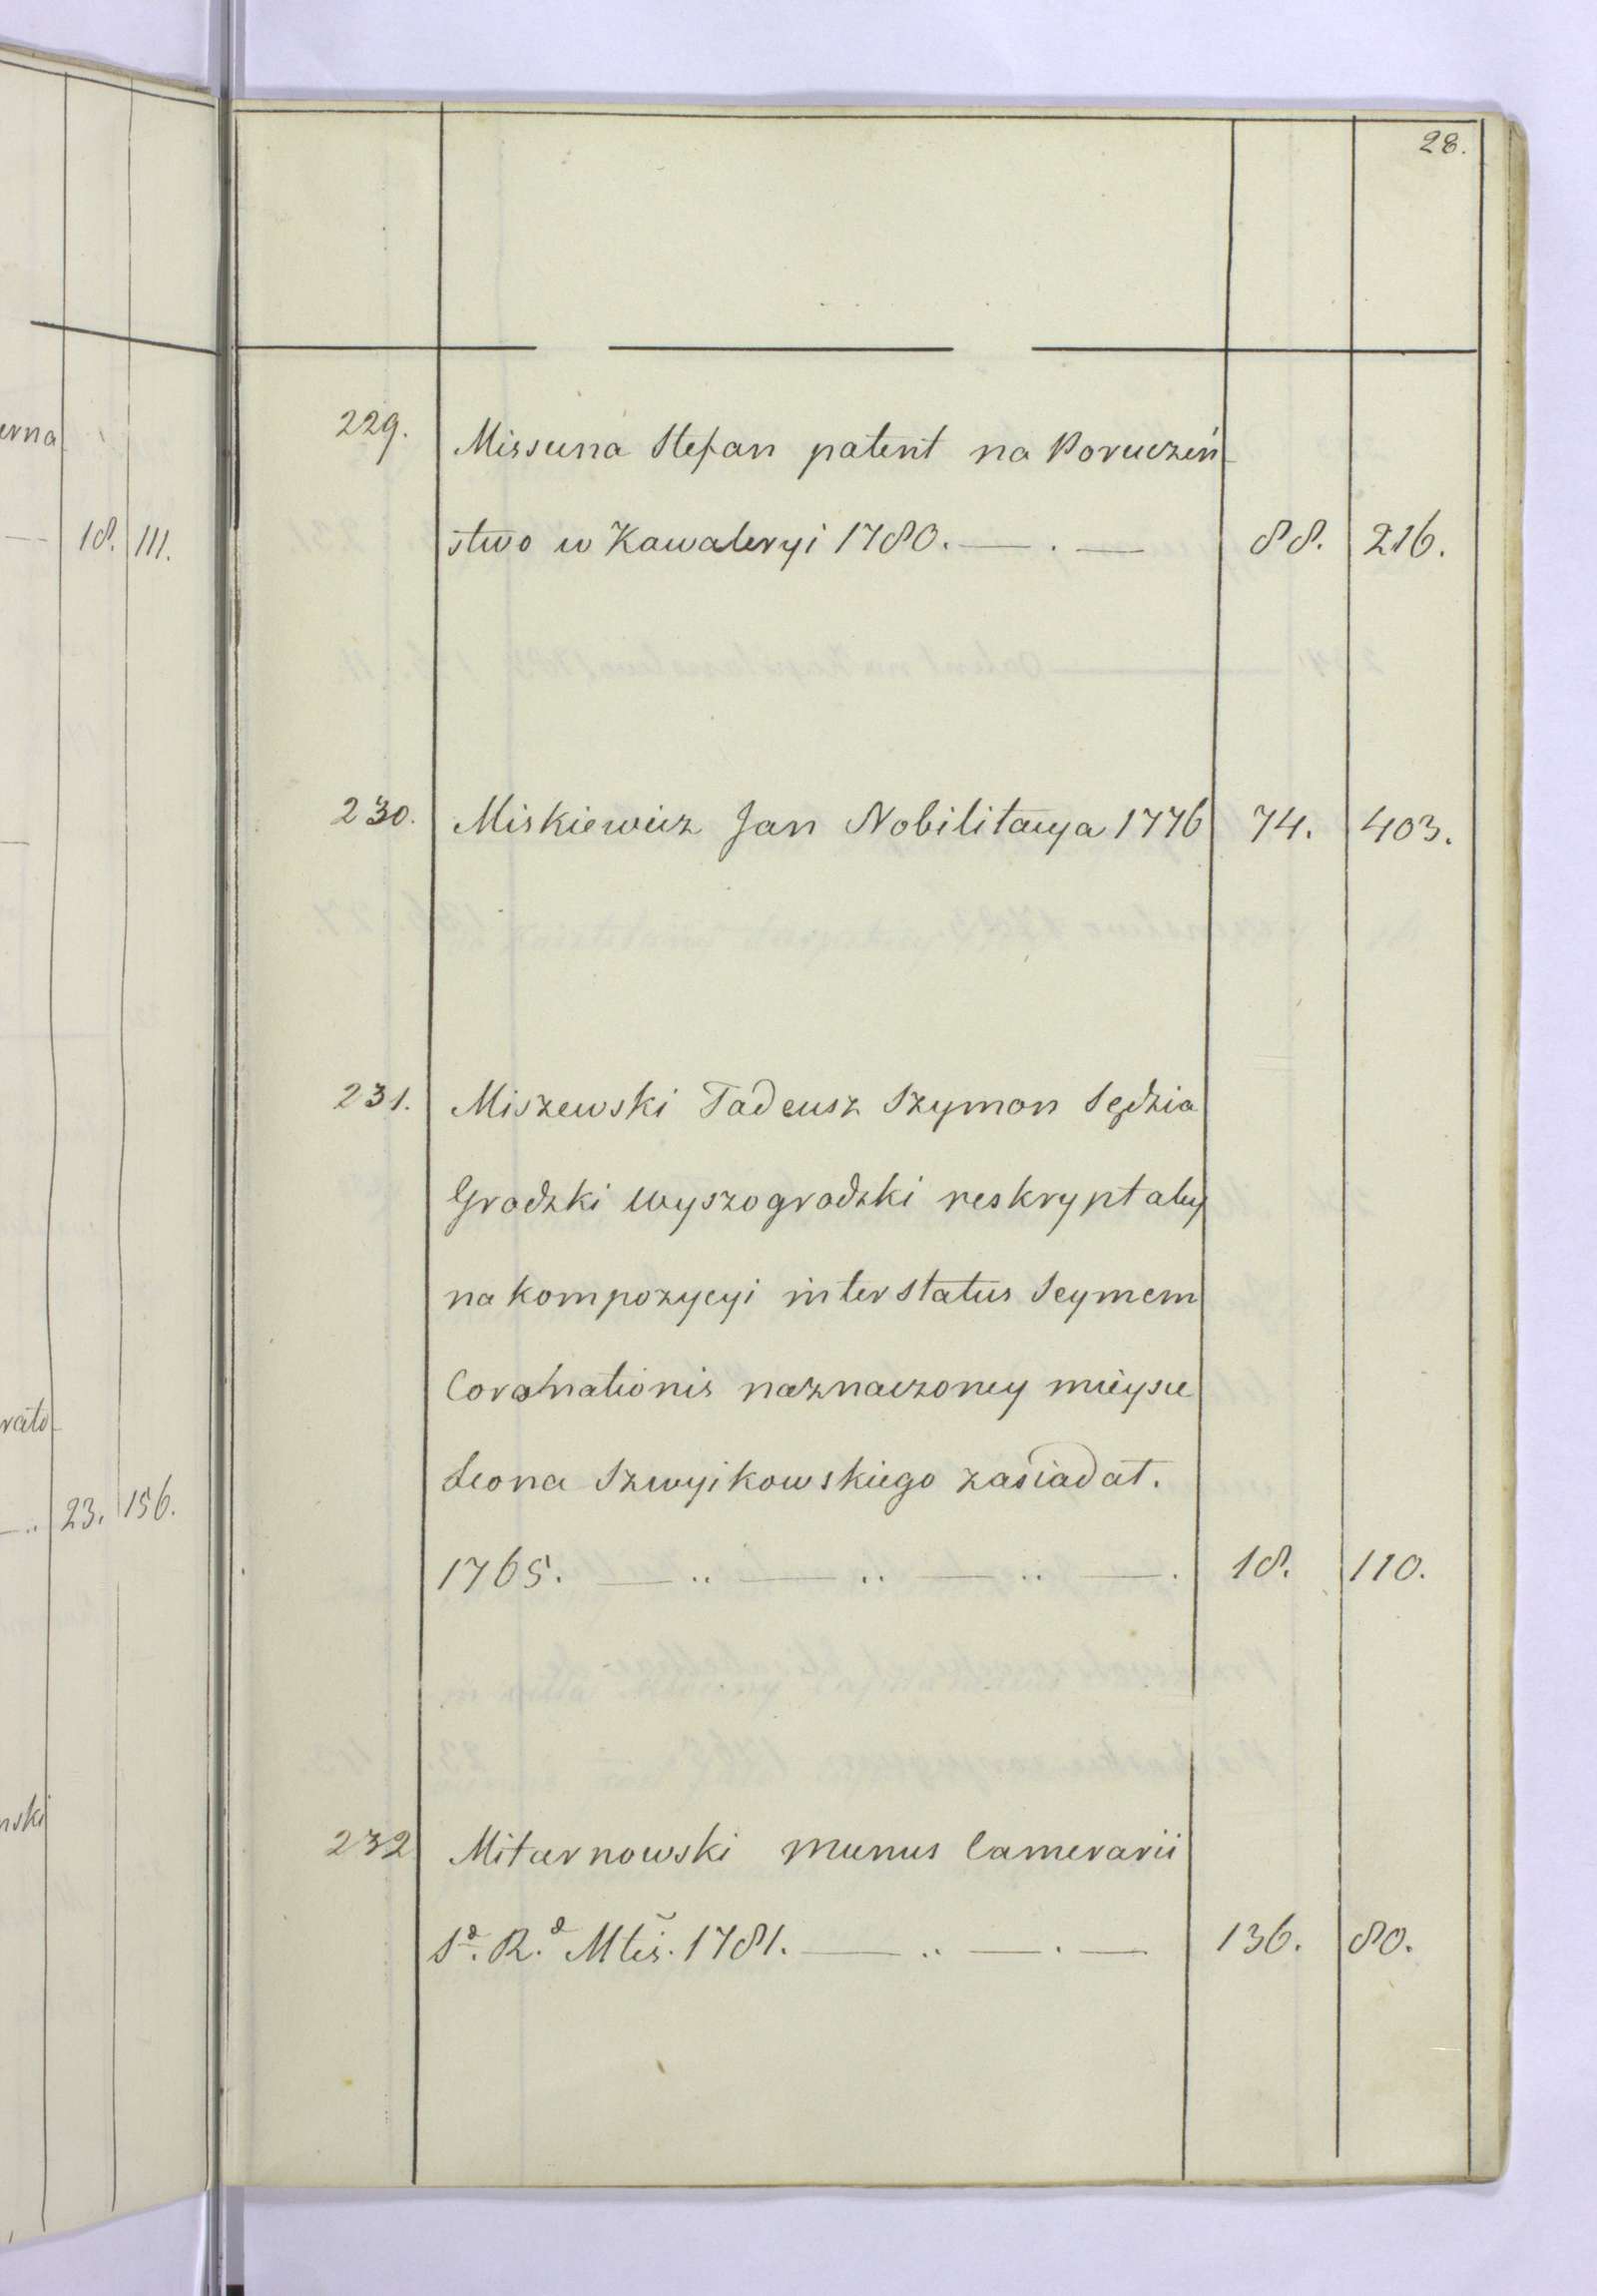 28.
erna
18. 111.
rato
23. 156.
nski
229. Missuna Stefan patent na Poruczeń-
stwo w Kawaleryi 1780. — . — 88. 216.
230. Miskiewicz Jan Nobilitacya 1776 74. 403.
231. Miszewski Tadeusz Szymon Sędzia
Grodzki Wyszogrodzki reskrypt aby
na kompozycyi inter status Seymem
Coronationis naznaczoney mieysce
Leona Szwyikowskiego zasiadał.
1765. — .. — .. — .. — . 18. 110.
232 Mitarnowski munus Camerarii
S. R. Mtis. 1781. — .. — . — 136. 80.